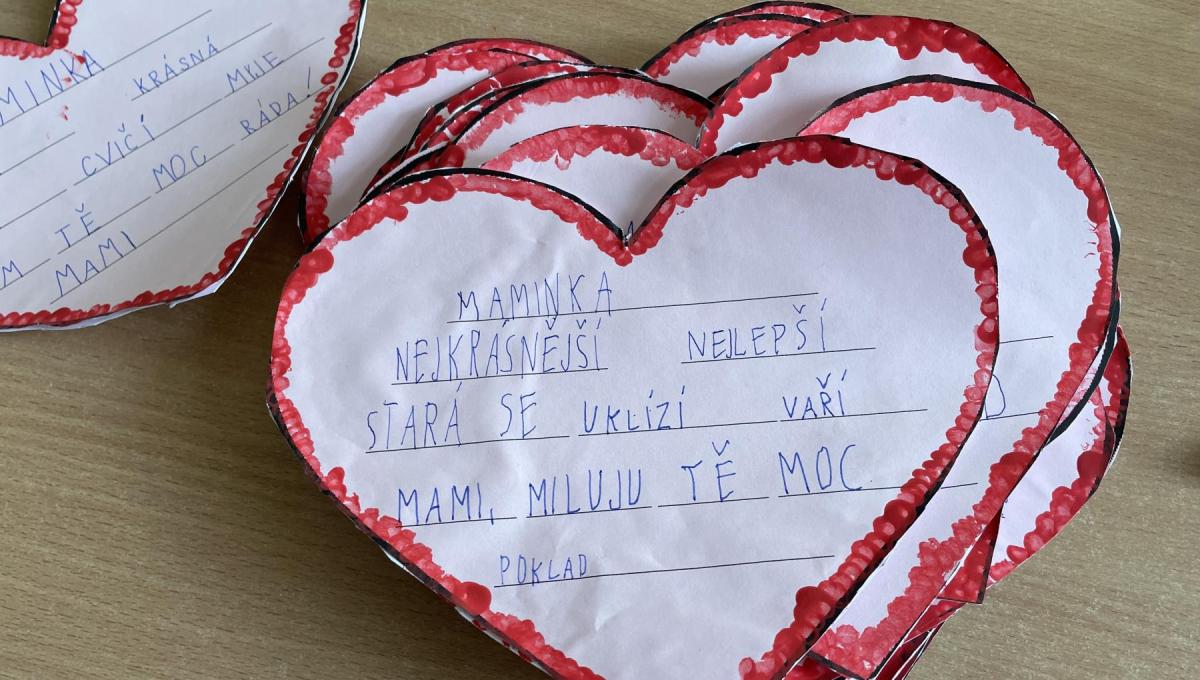 MINKA
KRÁSNÁ
CVIČÍ MYJE
TĚ MOC RÁDA!
M MAMI
MAMINKA
NEJKRÁSNĚJŠÍ NEJLEPŠÍ
STARÁ SE UKLÍZÍ VAŘÍ
MAMI, MILUJU TĚ MOC
POKLAD